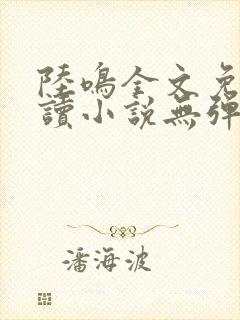 陸鳴全文免
讀小說無彈
潘海波